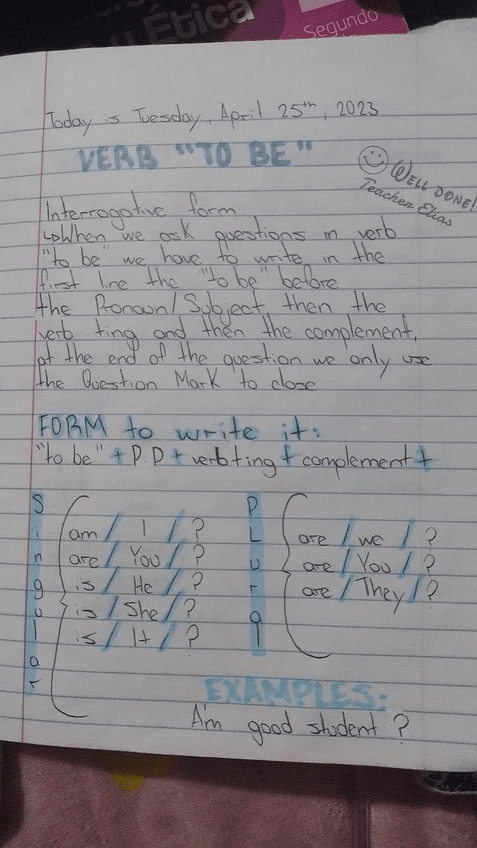 u Ética
Segundo
Today is Tuesday, April 25th, 2023
VERB "TO BE"
WELL DONE!
Teacher Elias
Interrogative form
↳When we ask questions in verb
"to be" we have to write in the
first line the "to be" before
the Pronoun/Subject, then the
verb ting and then the complement,
at the end of the question we only use
the Question Mark to close
FORM to write it:
"to be" + P.P + verb+ing + complement +
Singular
am / I / ?
are / You / ?
is / He / ?
is / She / ?
is / It / ?
PLUral
are / we / ?
are / You / ?
are / They / ?
EXAMPLES:
Am good student ?